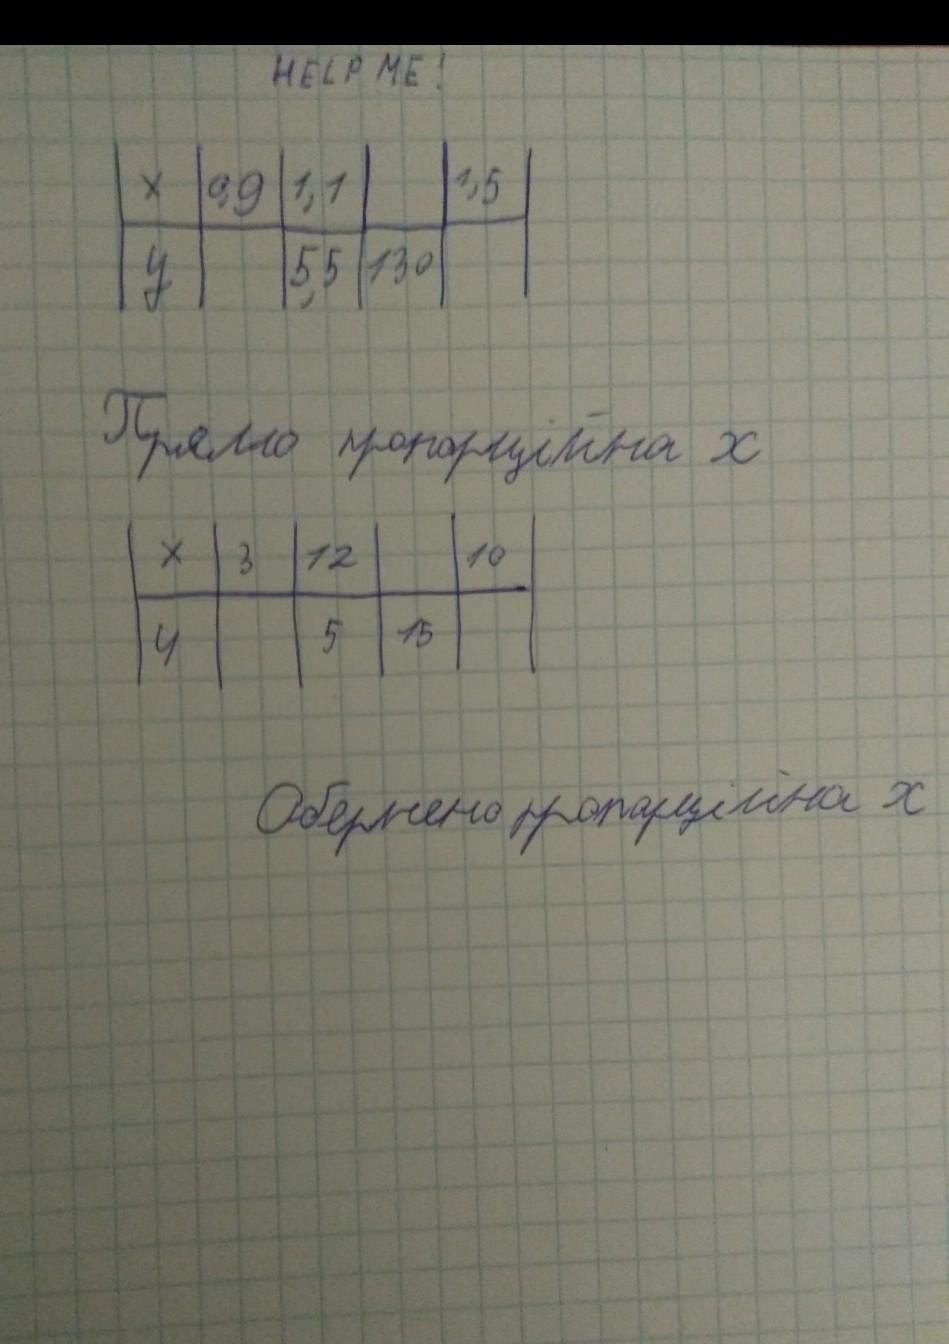 HELP ME!
x 0,9 1,1 1,5
y 5,5 130
Прямо пропорційна x
x 3 12 10
y 5 15
Обернено пропорційна x